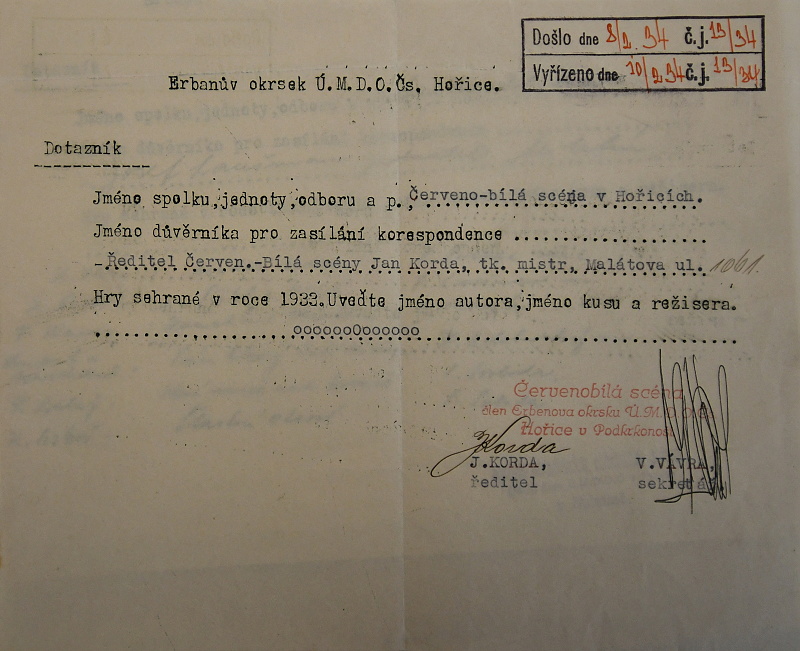 Došlo dne 8/2. 34 č.j. 13/34
Vyřízeno dne 10/2 34 č.j. 13/34
Erbanův okrsek Ú.M.D.O.Čs, Hořice.
Dotazník
Jméno spolku,jednoty,odboru a p. Červeno-bílá scéna v Hořicích.
Jméno důvěrníka pro zasílání korespondence ..................
Ředitel Červen.-Bílá scény Jan Korda, tk. mistr, Malátova ul. 1061.
Hry sehrané v roce 1933.Uveďte jméno autora,jméno kusu a režisera.
oooooo0oooooo
Červenobílá scéna
člen Erbenova okrsku Ú.M.D.O.Č.
Hořice v Podkrkonoší
Korda
J.KORDA, V.VÁVRA,
ředitel sekretář